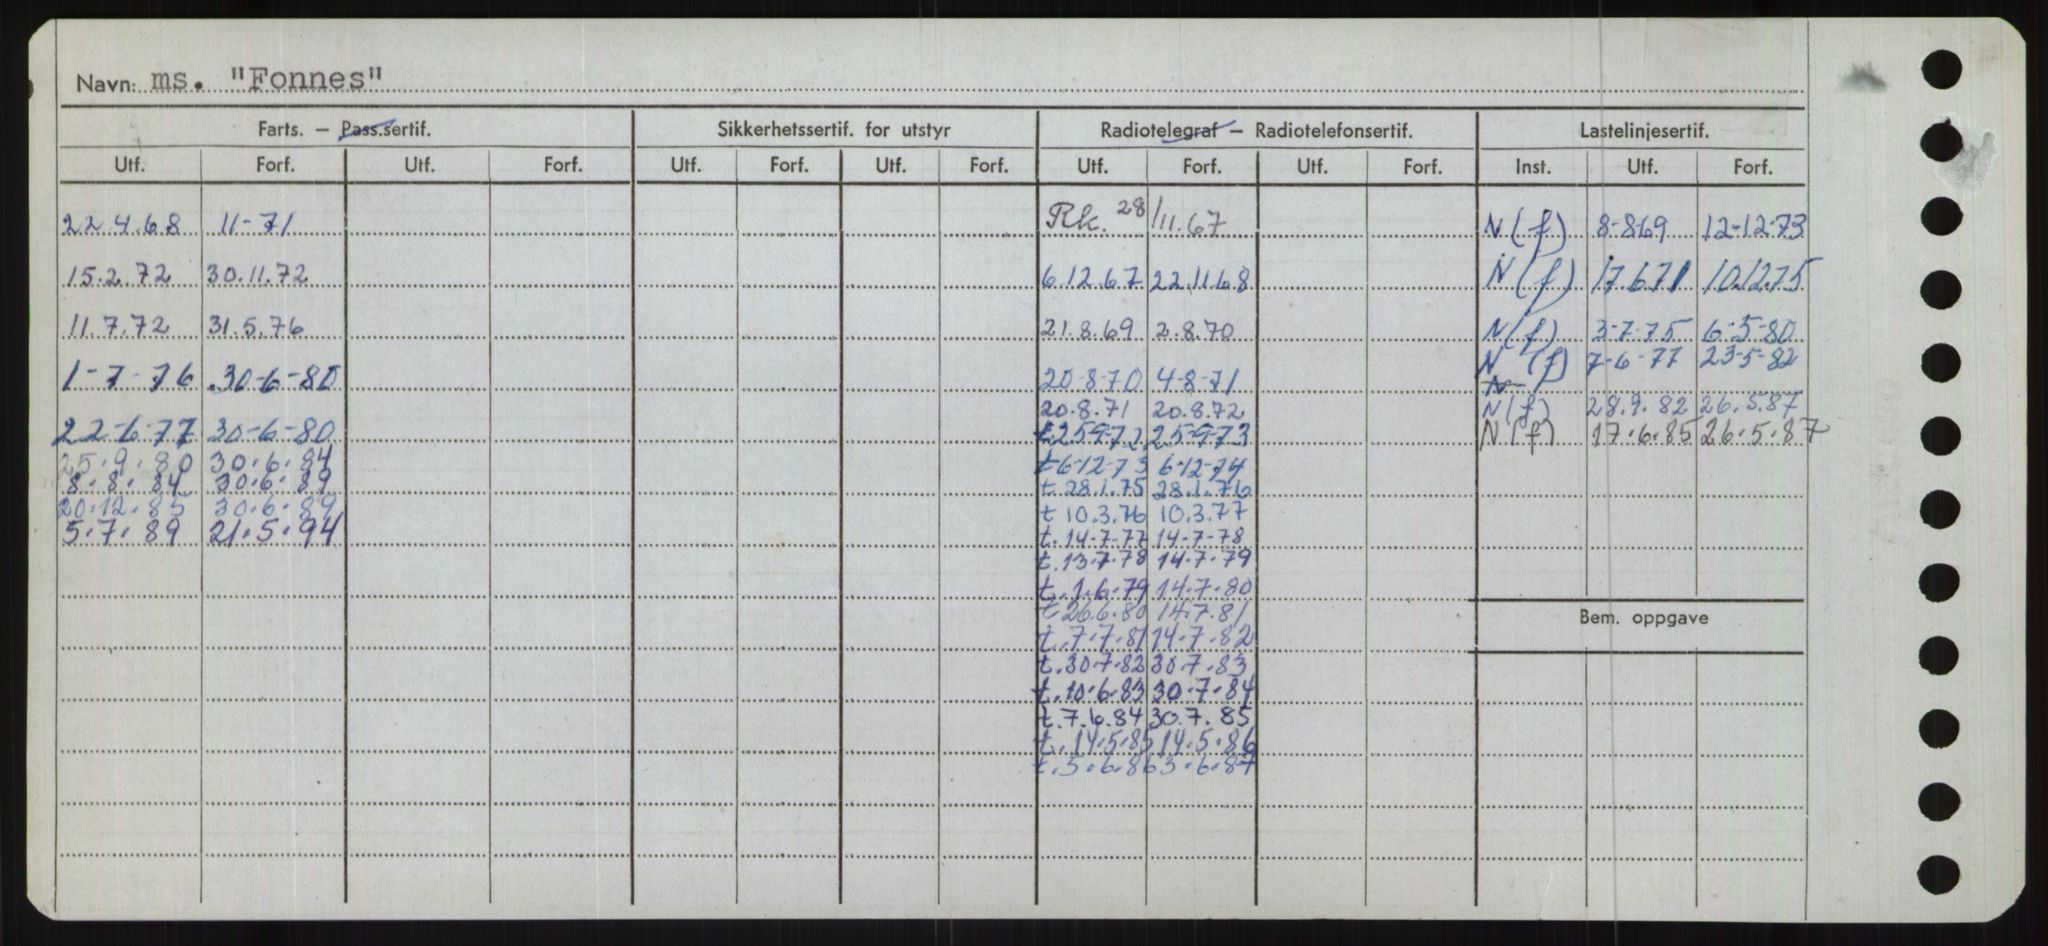 Navn: ms. "Fonnes"
Farts. — Pass.sertif. Sikkerhetssertif. for utstyr Radiotelegraf — Radiotelefonsertif. Lastelinjesertif.
Utf. Forf. Utf. Forf. Utf. Forf. Utf. Forf. Utf. Forf. Utf. Forf. Inst. Utf. Forf.
22.4.68 11-71 Rk. 28/11.67 N(f) 8-869 12-12-73
15.2.72 30.11.72 6.12.67 22.11.68 N(f) 17.671 10.12.75
11.7.72 31.5.76 21.8.69 2.8.70 N(f) 3-7-75 6-5-80
N (f) 7-6-77 23-5-82
1-7-76 30-6-80 20-8-70 4-8-71 N
20.8.71 20.8.72 N(f) 28.9.82 26.5.87
22-6-77 30-6-80 t25972 25-9-73 N(f) 17.6.85 26.5.87
25.9.80 30.6.84 t6-12-73 6-12-74
8.8.84 30.6.89 t 28.1.75 28.1.76
20.12.85 30.6.89 t 10.3.76 10.3.77
5.7.89 21.5.94 t.14-7-77 14-7-78
t.13.7.78 14.7.79
t.1.6.79 14.7.80
t 26.6.80 14.7.81
Bem. oppgave
t.7.7.81 14.7.82
t.30.7.82 30.7.83
t.10.6.83 30.7.84
t.7.6.84 30.7.85
t.14.5.85 14.5.86
t.5.6.86 5.6.87